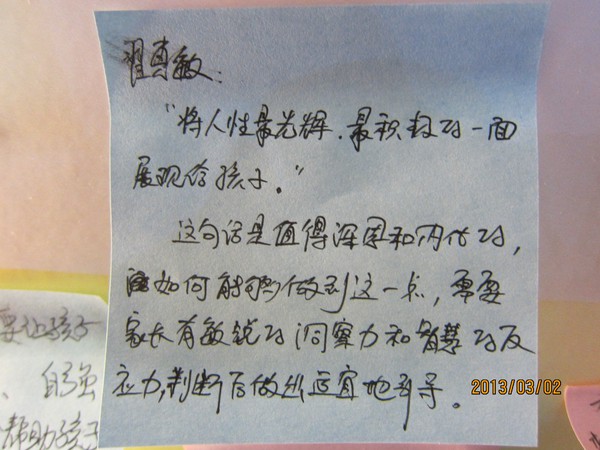 程真敏：
“将人性最光辉、最积极的一面
展现给孩子。”
这句话是值得深思和内化的，
如何能够做到这一点，需要
家长有敏锐的洞察力和智慧的反
应力，判断后做出适宜地引导。
2013/03/02
要让孩子
、自强
帮助孩子